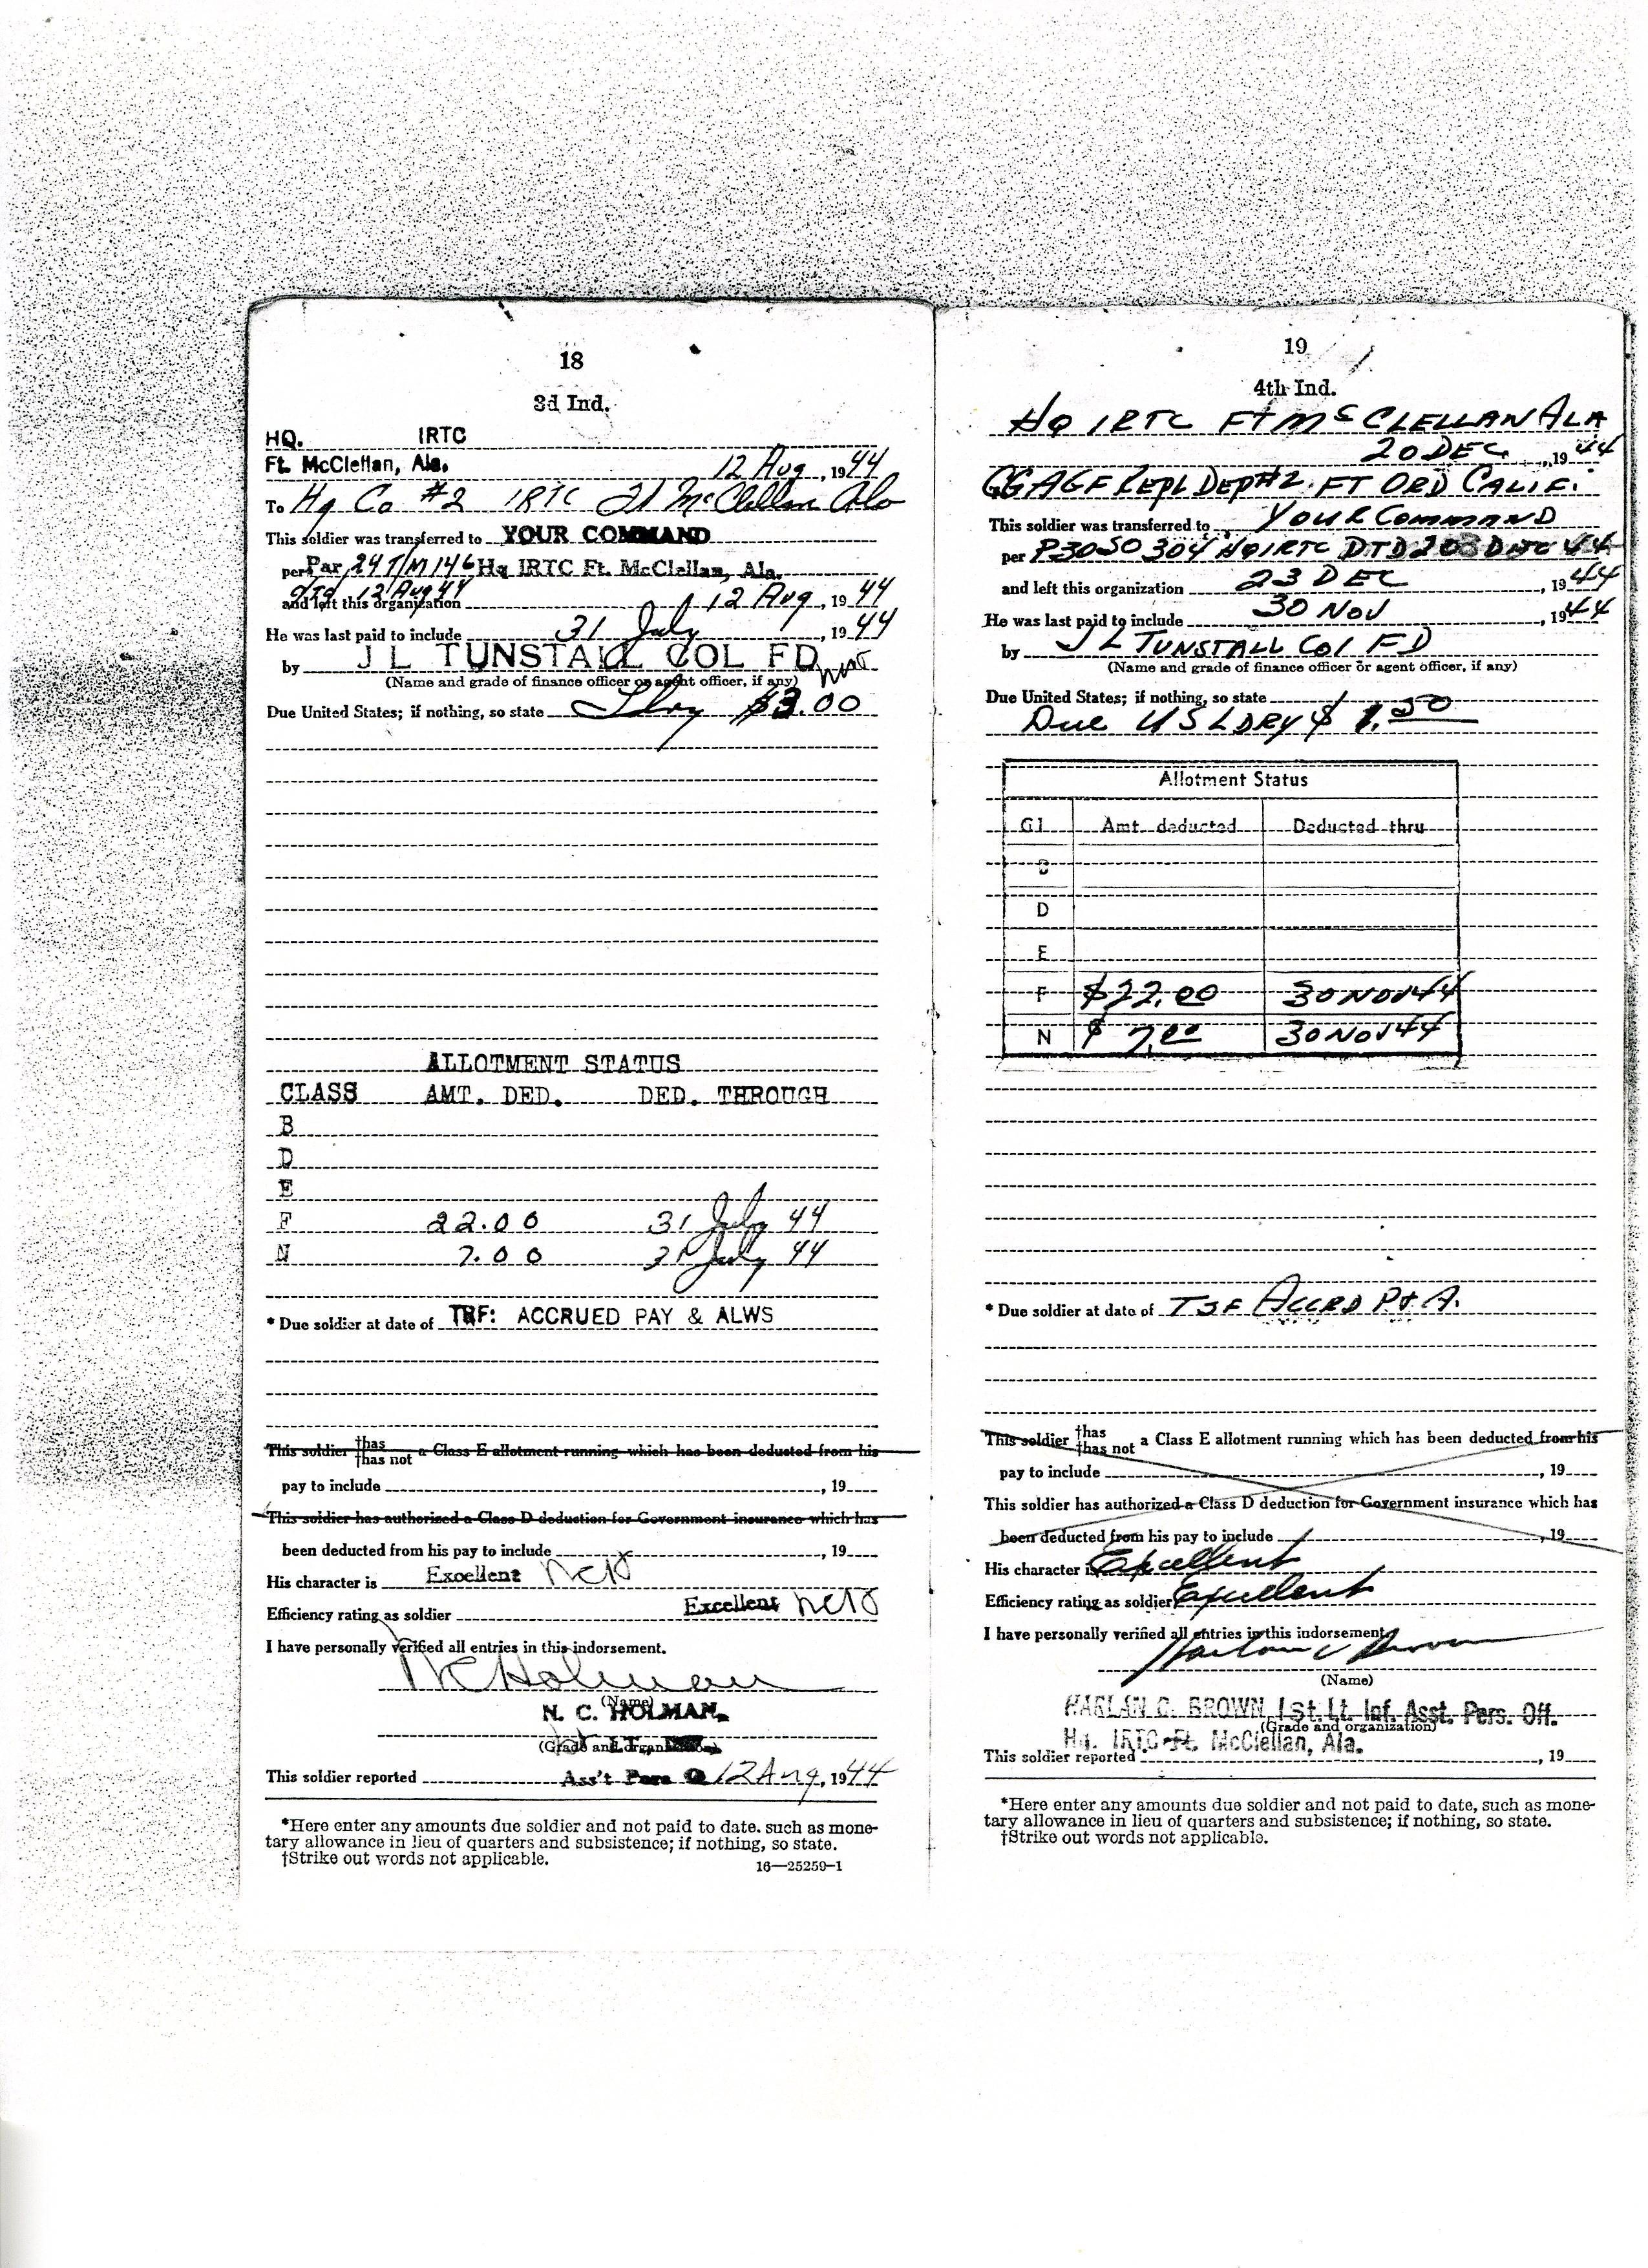 18
3d Ind.
HQ. IRTC
Ft. McClellan, Ala. 12 Aug, 1944
To Hq Co #2 IRTC Ft McClellan Ala
This soldier was transferred to YOUR COMMAND
per Par 24 T/M 146 Hq IRTC Ft. McClellan, Ala.
dtd 12 Aug 44
and left this organization 12 Aug, 1944
He was last paid to include 31 July, 1944
by J L TUNSTALL COL FD
(Name and grade of finance officer or agent officer, if any)
Due United States; if nothing, so state $3.00
ALLOTMENT STATUS
CLASS AMT. DED. DED. THROUGH
B
D
E
F 22.00 31 July 44
N 7.00 31 July 44
* Due soldier at date of TRF: ACCRUED PAY & ALWS
This soldier †has †has not a Class E allotment running which has been deducted from his
pay to include , 19
This soldier has authorized a Class D deduction for Government insurance which has
been deducted from his pay to include , 19
His character is Excellent NCH
Efficiency rating as soldier Excellent NCH
I have personally verified all entries in this indorsement.
N C Holman
(Name)
N. C. HOLMAN,
(Grade and organization)
This soldier reported Ass't Pers O 12 Aug, 1944
*Here enter any amounts due soldier and not paid to date, such as mone-
tary allowance in lieu of quarters and subsistence; if nothing, so state.
†Strike out words not applicable.
16—25259-1
19
4th Ind.
HQ IRTC FT McCLELLAN ALA
20 DEC, 1944
CG AGF REPL DEP #2. FT ORD CALIF.
This soldier was transferred to YOUR COMMAND
per P30 SO 304 HQ IRTC DTD 20 DEC 44
and left this organization 23 DEC, 1944
He was last paid to include 30 NOV, 1944
by J L TUNSTALL COL FD
(Name and grade of finance officer or agent officer, if any)
Due United States; if nothing, so state
Due U S LDRY $ 1.50
Allotment Status
Cl Amt. deducted Deducted thru
B
D
E
F $22.00 30 NOV 44
N $ 7.00 30 NOV 44
* Due soldier at date of TSF ACCRD P & A.
This soldier †has †has not a Class E allotment running which has been deducted from his
pay to include , 19
This soldier has authorized a Class D deduction for Government insurance which has
been deducted from his pay to include , 19
His character is Excellent
Efficiency rating as soldier Excellent
I have personally verified all entries in this indorsement.
Harlan C Brown
(Name)
HARLAN C. BROWN 1st. Lt. Inf. Asst. Pers. Off.
(Grade and organization)
Hq. IRTC Ft. McClellan, Ala.
This soldier reported , 19
*Here enter any amounts due soldier and not paid to date, such as mone-
tary allowance in lieu of quarters and subsistence; if nothing, so state.
†Strike out words not applicable.